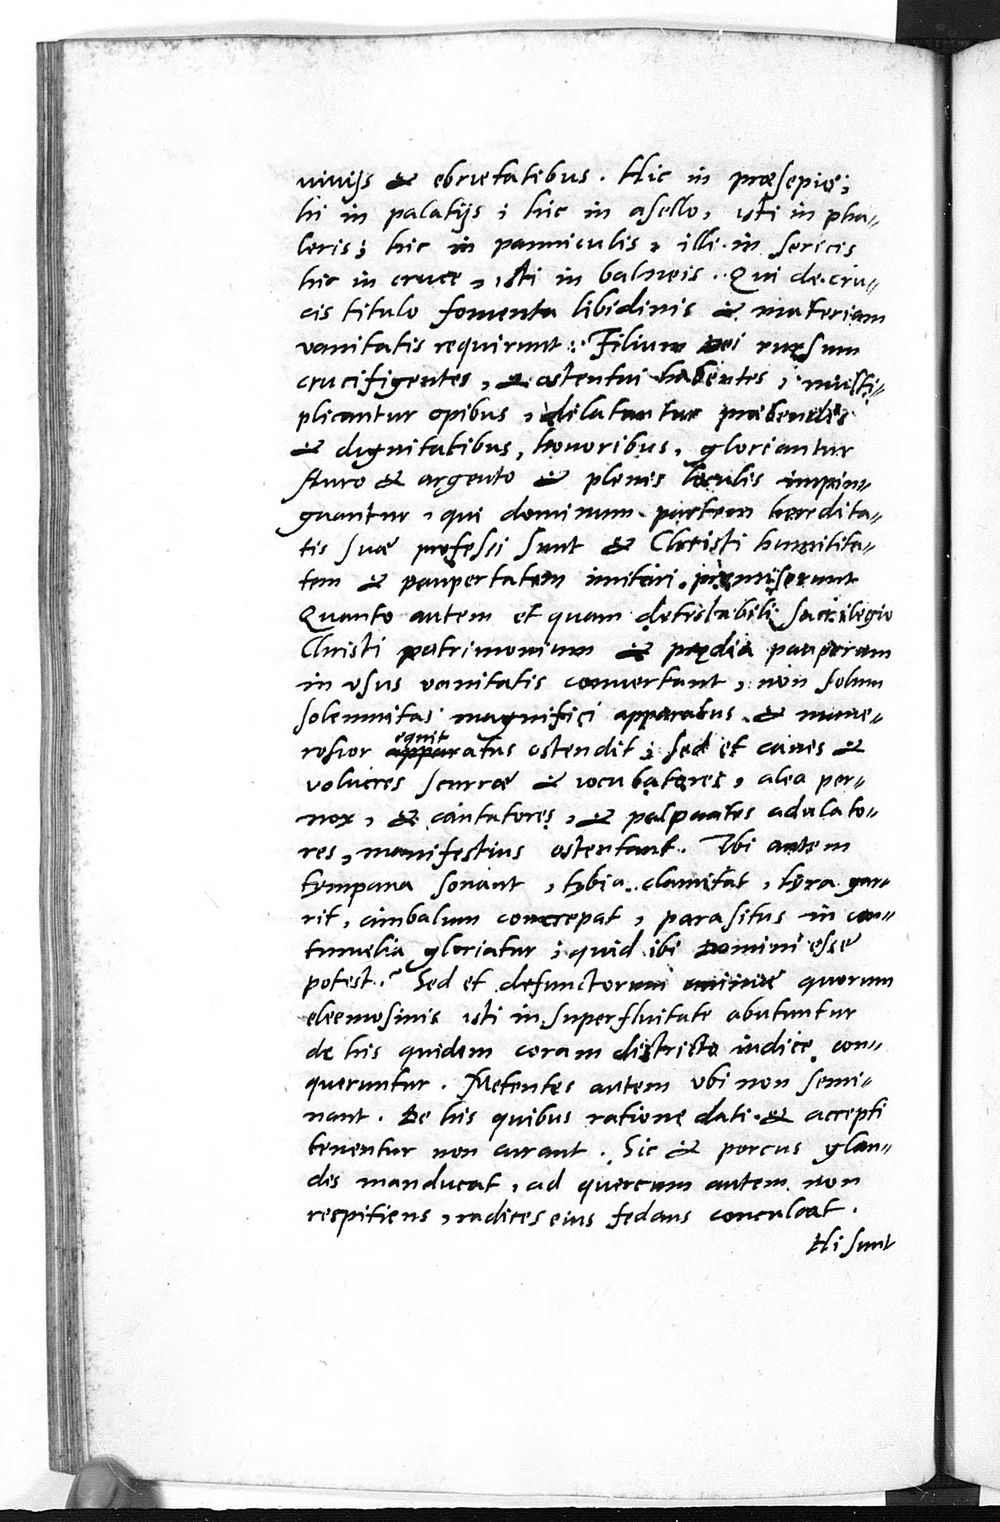 uiuijs & ebrietatibus. Hic in præsepio;
hi in palatijs; hic in asello, isti in pha„
leris; hic in panniculis, illi in sericis
hic in cruce, isti in balneis. Qui de cru„
cis titulo fomenta libidinis & materiam
vanitatis requirunt: Filium Dei rursum
crucifigentes, & ostentui habentes, multi„
plicantur opibus, dilatantur præbendis
& dignitatibus, honoribus, gloriantur
Auro & argento & plenis loculis impin„
guantur, qui dominum partem heredita„
tis suæ professi sunt & Christi humilita„
tem & paupertatem imitari promiserunt
Quanto autem et quam detestabili sacrilegio
Christi patrimonium & prædia pauperum
in vsus vanitatis conuertunt, non solum
solemnitas magnifici apparatus & nume„
rosior equitatus ostendit; Sed et canes &
volucres scurræ & iocubatores, alea per„
nox, & cantatores, & palpantes adulato„
res, manifestius ostentant. Vbi autem
tympana sonant, tybia clamitat, lyra gar„
rit, cimbalum concrepat, parasitus in con„
tumelia gloriatur; quid ibi Domini esse
potest? Sed et defunctorum animæ quorum
eleemosinis isti in superfluitate abutuntur
de his quidem coram districto iudice con„
queruntur. Metentes autem vbi non semi„
nant. De his quibus ratione dati & accepti
tenentur non curant. Sic & porcus glan„
des manducat, ad quercum autem non
respitiens, radices eius fedans conculcat.
Hi sunt